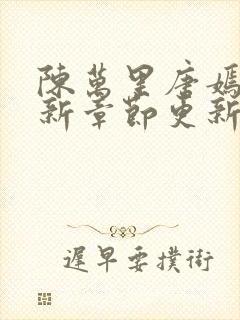 陳萬里唐嫣
新章節更新
遲早要撲街